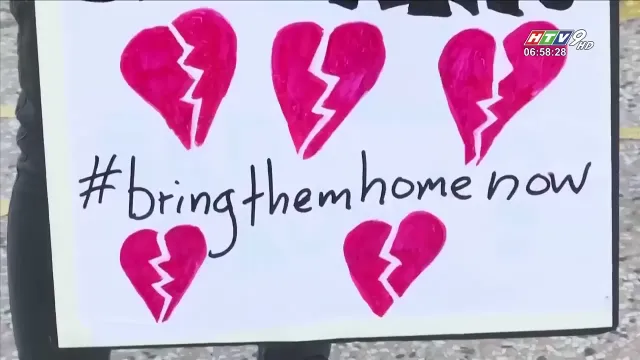 HTV9 HD
06:58:28
#bringthemhome now